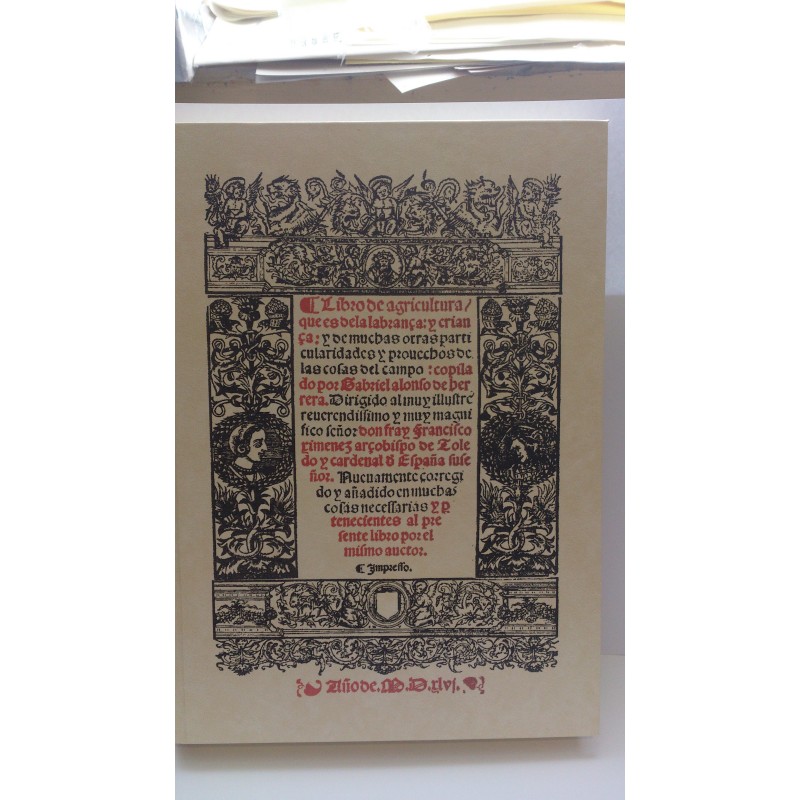 ¶ Libro de agricultura/
que es dela labrança: y crian
ça: y de muchas otras parti
cularidades y prouechos de
las cosas del campo: copila
do por Gabriel alonso de her
rera. Dirigido al muy illustre
reuerendissimo y muy magni
fico señor don fray Francisco
ximenez arçobispo de Tole
do y cardenal d̄ España su se
ñor. Nueuamente corregi
do y añadido en muchas
cosas necessarias y p̱
tenecientes al pre
sente libro por el
mismo auctor.
¶ Impresso.
Año de. M.D.xlvj.